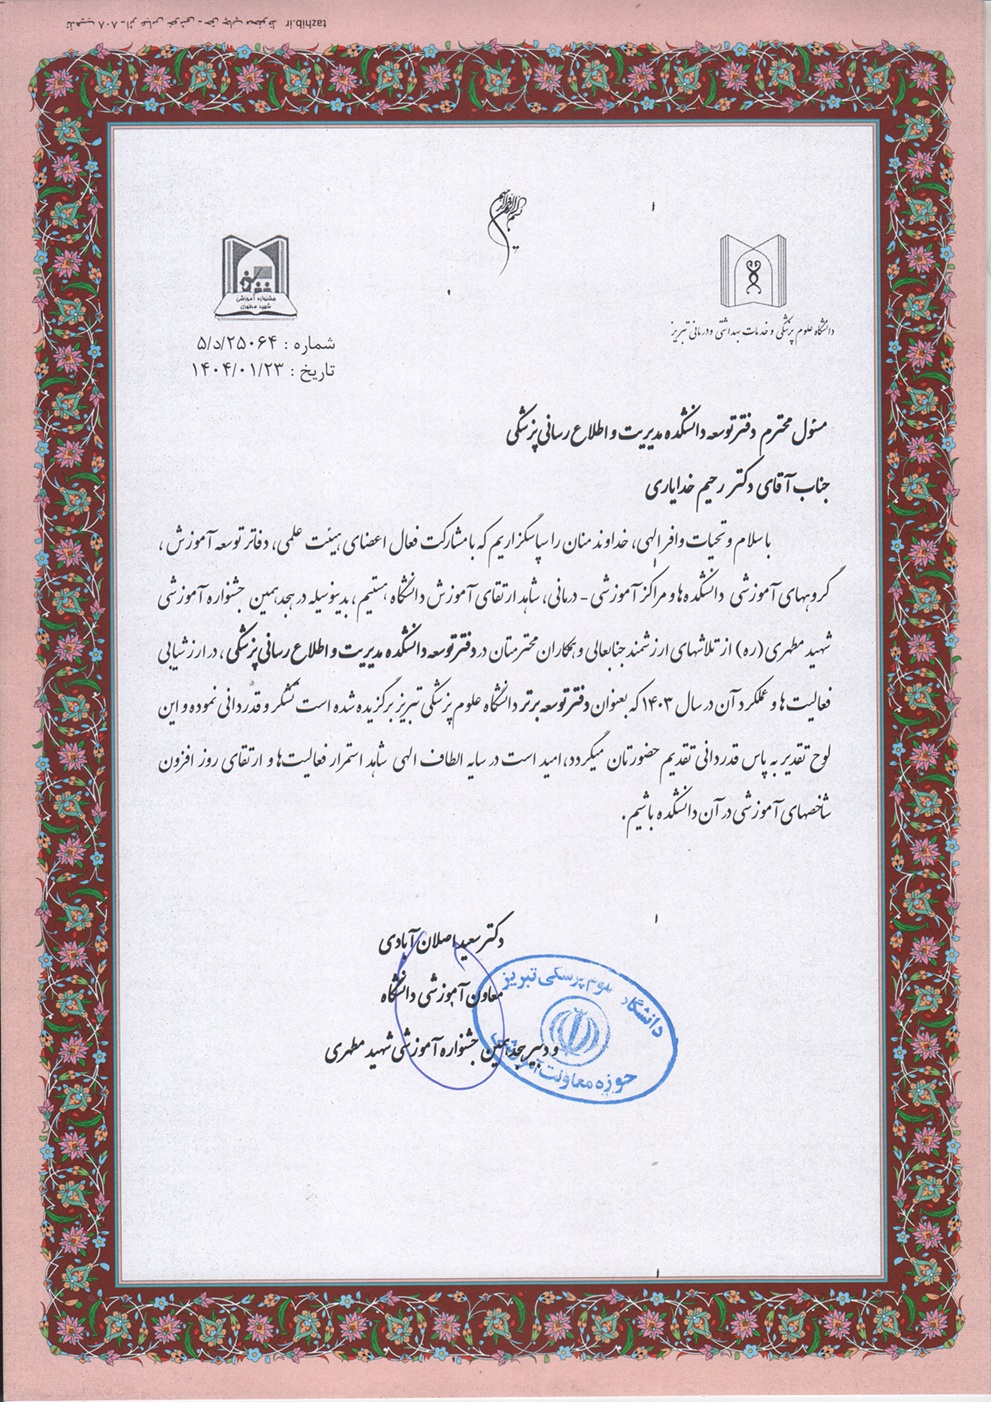 tazhib.ir
بسم الله الرحمن الرحیم
جشنواره آموزشی
شهید مطهری
دانشگاه علوم پزشکی و خدمات بهداشتی و درمانی تبریز
شماره : ۵/د/۲۵۰۶۴
تاریخ : ۱۴۰۴/۰۱/۲۳
مسئول محترم دفتر توسعه دانشکده مدیریت و اطلاع رسانی پزشکی
جناب آقای دکتر رحیم خدایاری
با سلام و تحیات وافر الهی، خداوند منان را سپاسگزاریم که با مشارکت فعال اعضای هیئت علمی، دفاتر توسعه آموزش ،
گروههای آموزشی دانشکده ها و مراکز آموزشی - درمانی، شاهد ارتقای آموزش دانشگاه هستیم ، بدینوسیله در هجدهمین جشنواره آموزشی
شهید مطهری (ره) از تلاشهای ارزشمند جنابعالی و همکاران محترمتان در دفتر توسعه دانشکده مدیریت و اطلاع رسانی پزشکی ، در ارزشیابی
فعالیت ها و عملکرد آن در سال ۱۴۰۳ که بعنوان دفتر توسعه برتر دانشگاه علوم پزشکی تبریز برگزیده شده است تشکر و قدردانی نموده و این
لوح تقدیر به پاس قدردانی تقدیم حضورتان میگردد، امید است در سایه الطاف الهی شاهد استمرار فعالیت ها و ارتقای روز افزون
شاخصهای آموزشی در آن دانشکده باشیم.
دکتر سعید اصلان آبادی
معاون آموزشی دانشگاه
و دبیر هجدهمین جشنواره آموزشی شهید مطهری
دانشگاه علوم پزشکی تبریز
حوزه معاونت آموزشی